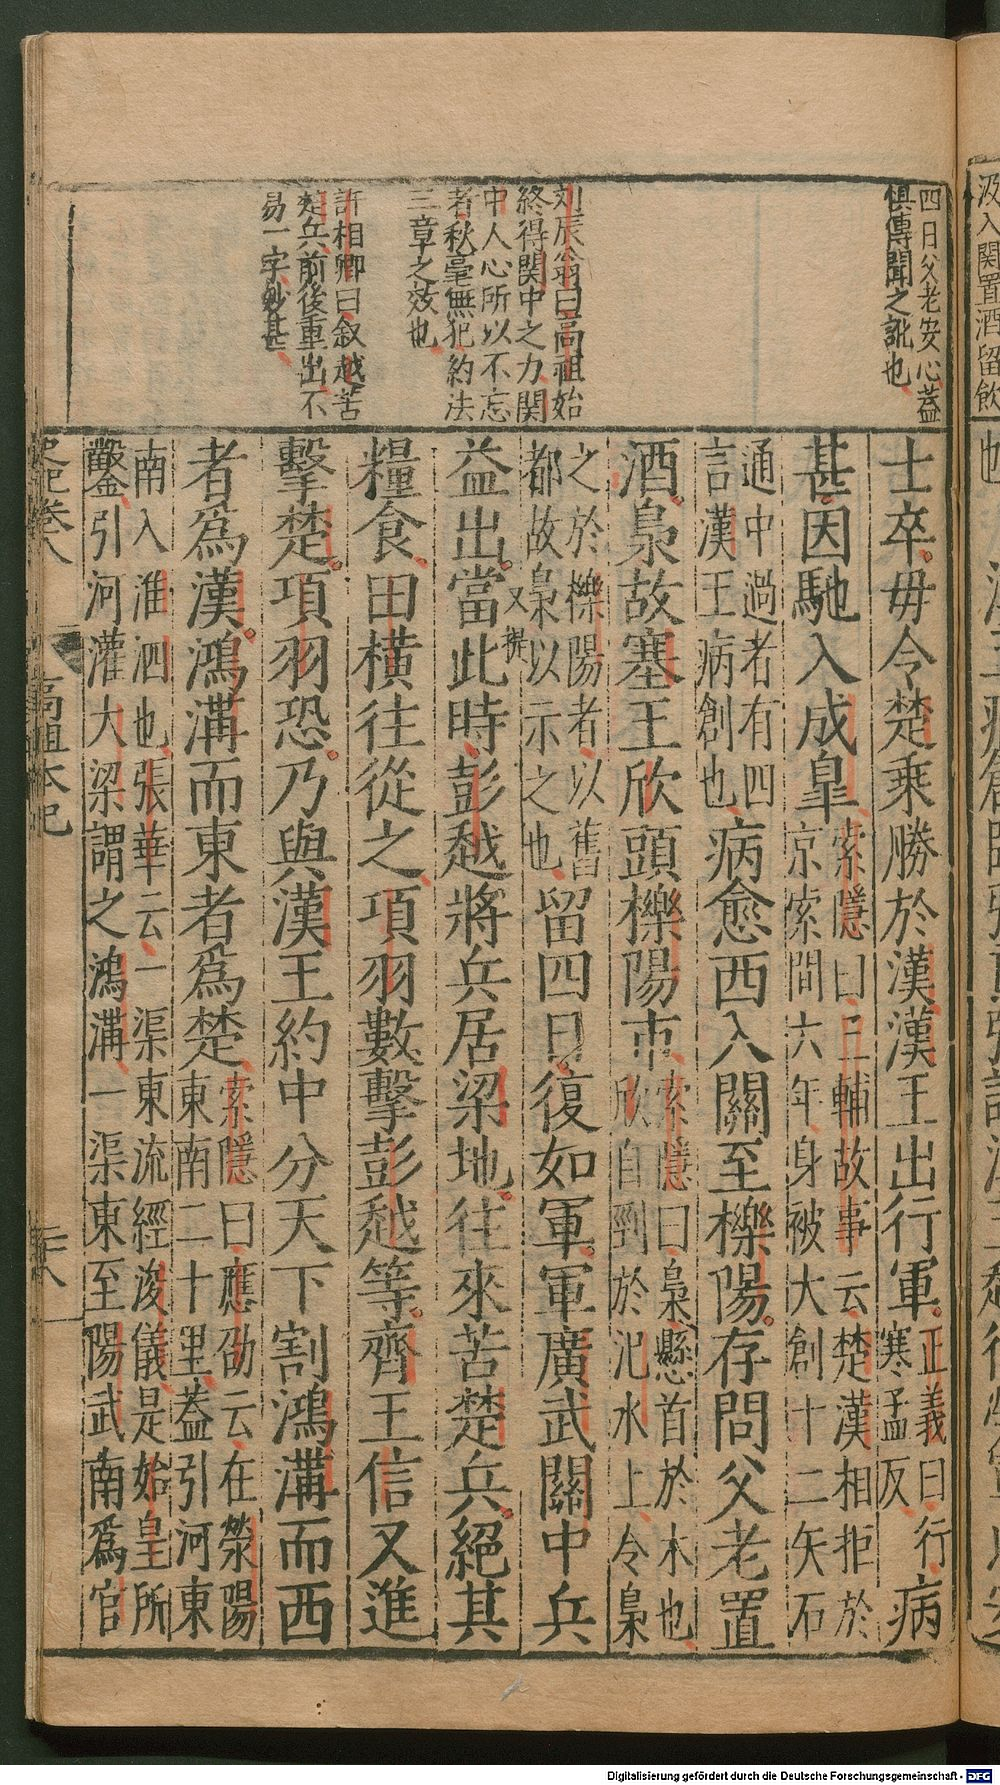 四日父老安心蓋
惧傳聞之訛也
刘辰翁曰高祖始
終得関中之力関
中人心所以不忘
者秋毫無犯約法
三章之效也
許相卿曰叙越苦
楚兵前後重出不
易一字妙甚
士卒毋令楚乘勝於漢漢王出行軍
正義曰行
寒孟反
病
甚因馳入成皐
索隱曰三輔故事云楚漢相拒於
京索間六年身被大創十二矢石
通中過者有四
言漢王病創也
病愈西入關至櫟陽存問父老置
酒梟故塞王欣頭櫟陽市
索隱曰梟懸首於木也
欣自剄於汜水上令梟
之於櫟陽者以舊
都故梟以示之也
留四日復如軍軍廣武關中兵
益出當此時彭越將兵居梁地往來苦楚兵絕其
又提
糧食田橫往從之項羽數擊彭越等齊王信又進
擊楚項羽恐乃與漢王約中分天下割鴻溝而西
者爲漢鴻溝而東者爲楚
索隱曰應劭云在滎陽
東南二十里蓋引河東
南入淮泗也張華云一渠東流經浚儀是始皇所
鑿引河灌大梁謂之鴻溝一渠東至陽武南爲官
史記卷八
高祖本紀
二十八
汲入関置酒留飲
也
Digitalisierung gefördert durch die Deutsche Forschungsgemeinschaft - DFG